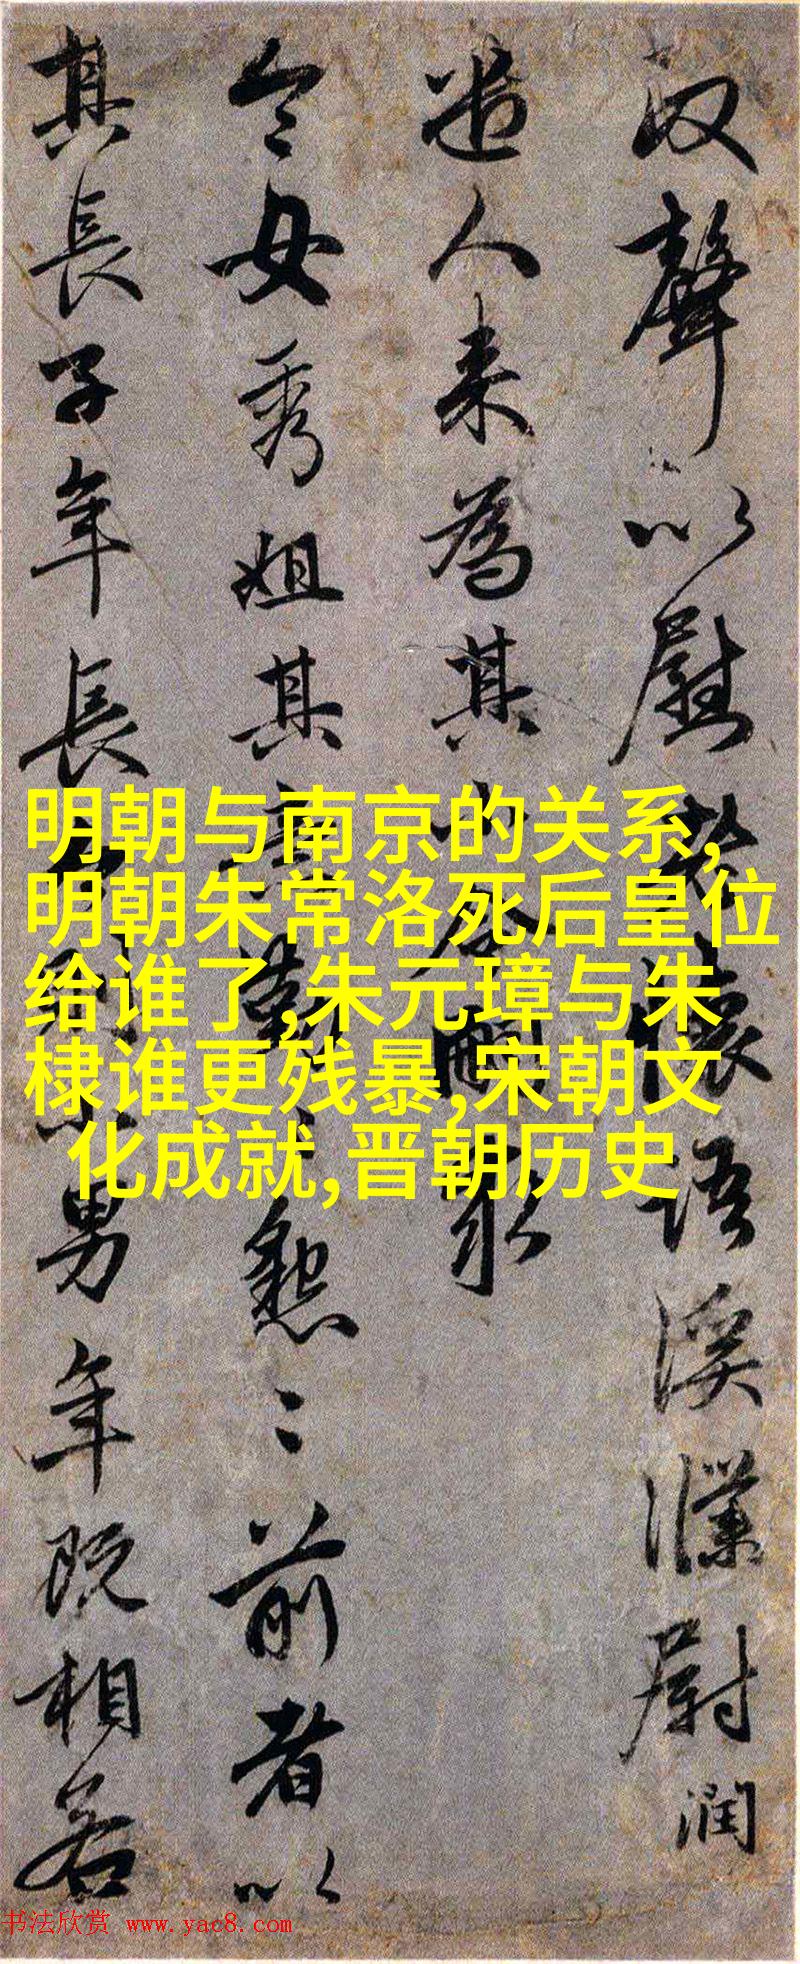 聲以慰懷語溪潤
人来為其
令女秀姐其勤懇〻前者以
其長子年長男年既相若
明朝与南京的关系,
明朝朱常洛死后皇位
给谁了,朱元璋与朱
棣谁更残暴,宋朝文
化成就,晋朝历史
书法欣赏 www.yac8.com